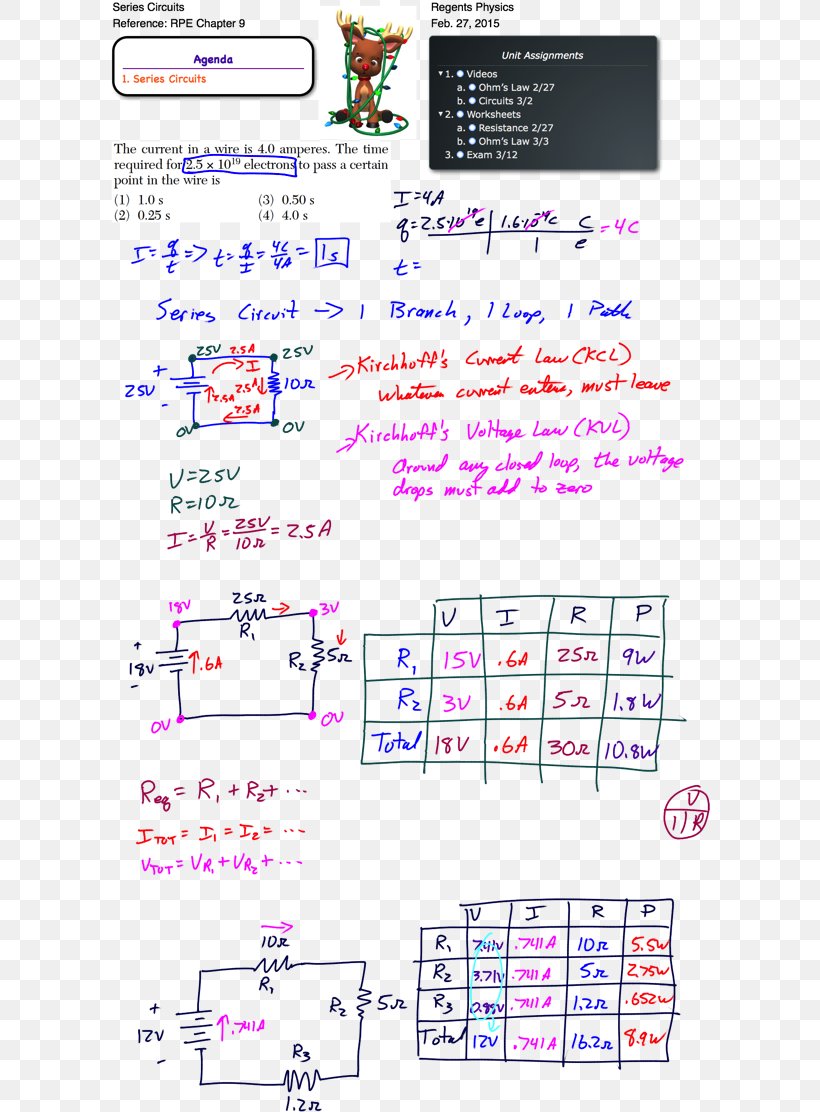 Series Circuits
Reference: RPE Chapter 9
Regents Physics
Feb. 27, 2015
Agenda
1. Series Circuits
Unit Assignments
1. Videos
a. Ohm's Law 2/27
b. Circuits 3/2
2. Worksheets
a. Resistance 2/27
b. Ohm's Law 3/3
3. Exam 3/12
The current in a wire is 4.0 amperes. The time
required for 2.5 × 10¹⁹ electrons to pass a certain
point in the wire is
(1) 1.0 s (3) 0.50 s
(2) 0.25 s (4) 4.0 s
I=4A
q=2.5·10¹⁹e | 1.6·10⁻¹⁹C C = 4C
1 e
t=
I=q/t => t=q/I=4C/4A=1s
Series Circuit -> 1 Branch, 1 Loop, 1 Path
25V 2.5A 25V
I
25V + - 2.5A 2.5A 10Ω
2.5A
0V 0V
->Kirchhoff's Current Law (KCL)
Whatever current enters, must leave
->Kirchhoff's Voltage Law (KVL)
Around any closed loop, the voltage
drops must add to zero
V=25V
R=10Ω
I=V/R=25V/10Ω=2.5A
18V 25Ω 3V
R₁
+ 18V - .6A R₂ 5Ω
0V 0V
V I R P
R₁ 15V .6A 25Ω 9W
R₂ 3V .6A 5Ω 1.8W
Total 18V .6A 30Ω 10.8W
Req = R₁ + R₂ + ...
ITOT = I₁ = I₂ = ...
VTOT = VR₁ + VR₂ + ...
V
I R
10Ω
R₁
R₂ 5Ω
+ 12V - .741A
R₃
1.2Ω
V I R P
R₁ 7.41V .741A 10Ω 5.5W
R₂ 3.71V .741A 5Ω 2.75W
R₃ 0.89V .741A 1.2Ω .652W
Total 12V .741A 16.2Ω 8.9W